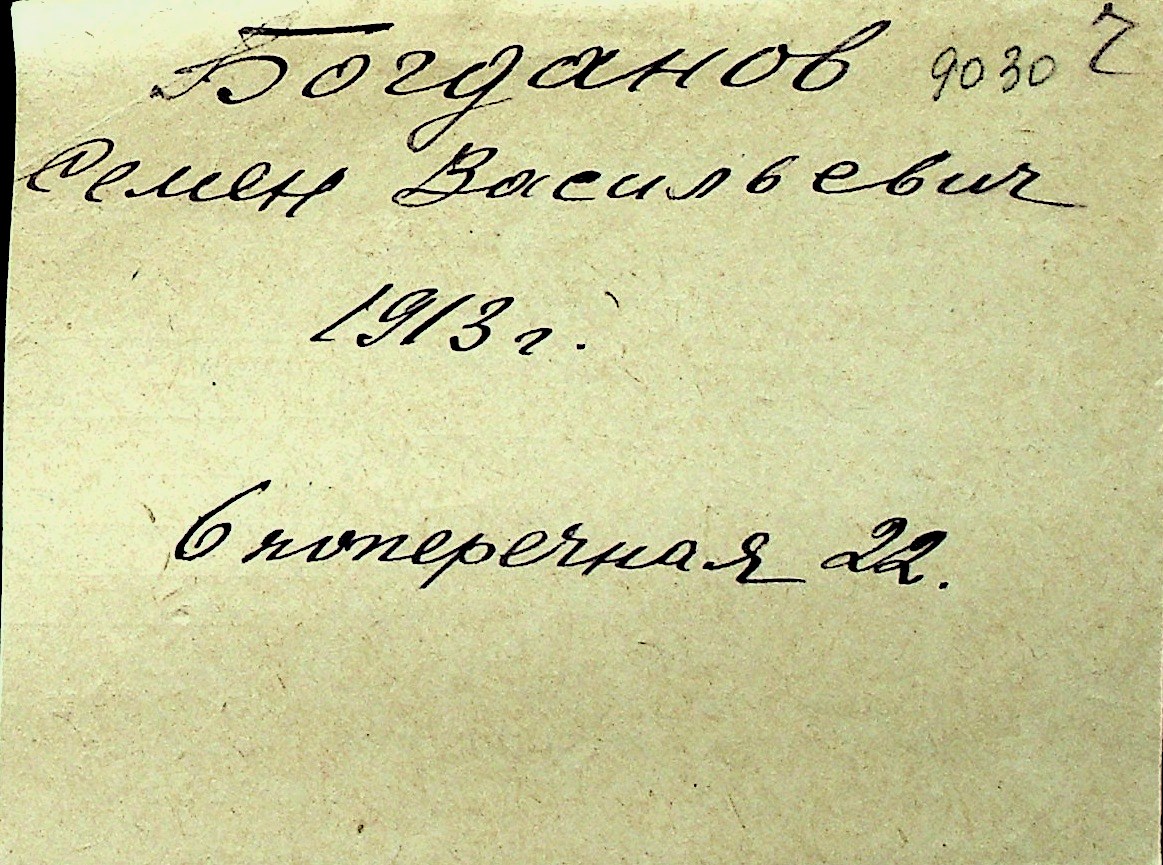 Богданов 9030
Семен Васильевич
1913 г.
6 поперечная 22.